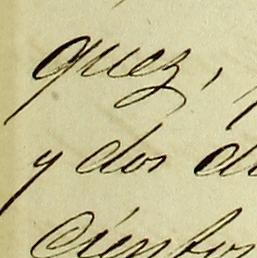 quez,
y dos
cientos